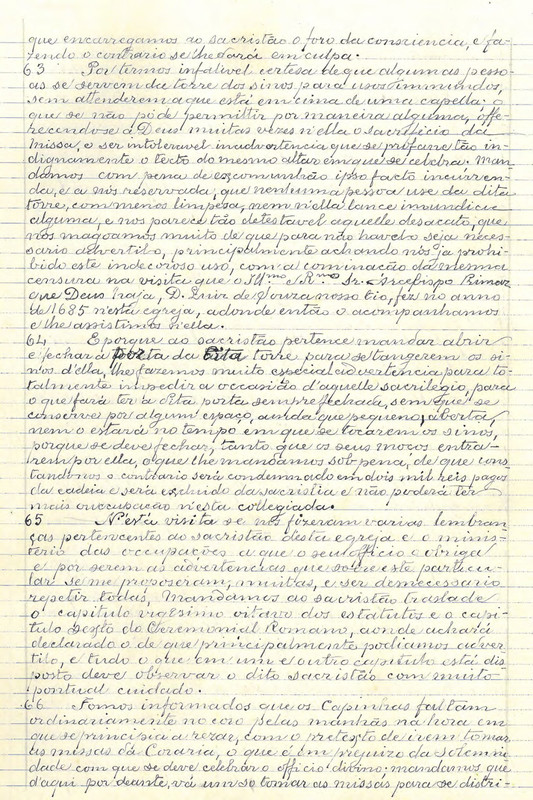 que encarregamos ao sacristão o foro da consciencia, e fa-
zendo o contrario se lhe dará em culpa.
63 Por termos infalivel certesa de que algumas pesso-
as se servem da torre dos sinos para usos immundos,
sem attenderem a que está em cima de uma capella: o
que se não póde permittir por maneira alguma, offe-
recendo-se a Deus muitas vezes n'ella o sacrificio da
Missa, e ser intoleravel inadvertencia que se profane tão in-
dignamente o tecto do mesmo altar em que se celebra. Man-
damos com pena de excomunhão ipso facto incurren-
da, e a nós reservada, que nenhuma pessoa use da dita
torre, com menos limpesa, nem n'ella lance immundicie
alguma, e nos parece tão detestavel aquelle desacato, que
nos magoamos muito de que para não havel-o seja neces-
sario advertil-o, principalmente achando nós já prohi-
bido este indecoroso uso, com a cominação da mesma
censura na visita que o Ill.mo e R.mo Sr. Arcebispo Primaz
que Deus haja, D. Luiz de Souza nosso tio, fez no anno
de 1685 n'esta egreja, adonde então o acompanhamos
e lhe assistimos n'ella.
64 E porque ao sacristão pertence mandar abrir
e fechar a porta da dita torre para se tangerem os si-
nos d'ella, lhe fazemos muito especial advertencia para to-
talmente impedir a occasião d'aquelle sacrilegio, para
o que fará ter a dita porta sempre fechada, sem que se
conserve por algum espaço, ainda que pequeno, aberta,
nem o estará no tempo em que se tocarem os sinos,
porque se deve fechar, tanto que os seus moços entra-
rem por ella, o que lhe mandamos sob pena, de que cons-
tando-nos o contrario será condemnado em dois mil reis pagos
da cadeia e será excluido da sacristia e não poderá ter
mais occupação n'esta collegiada.
65 N'esta visita se nos fizeram varias lembran-
ças pertencentes ao sacristão desta egreja e o minis-
terio das occupações a que o seu officio o obriga
e por serem as advertencias que sobre este particu-
lar se me proposeram, muitas, e ser desnecessario
repetir todas, Mandamos ao sacristão traslade
o capitulo vigesimo oitavo dos estatutos e o capi-
tulo sexto do Ceremonial Romano, aonde achará
declarado o de que principalmente podiamos adver-
til-o, e tudo o que em um e outro capitulo está dis-
posto deve observar o dito sacristão com muito
pontual cuidado.
66 Fomos informados que os Capinhas faltam
ordinariamente no coro pelas manhãs na hora em
que se principia a rezar, com o pretexto de irem tomar
as missas da Coraria, o que é em prejuizo da solemni-
dade com que se deve celebrar o officio divino; mandamos, que
d'aqui por deante, vá um só tomar as missas para se distri-